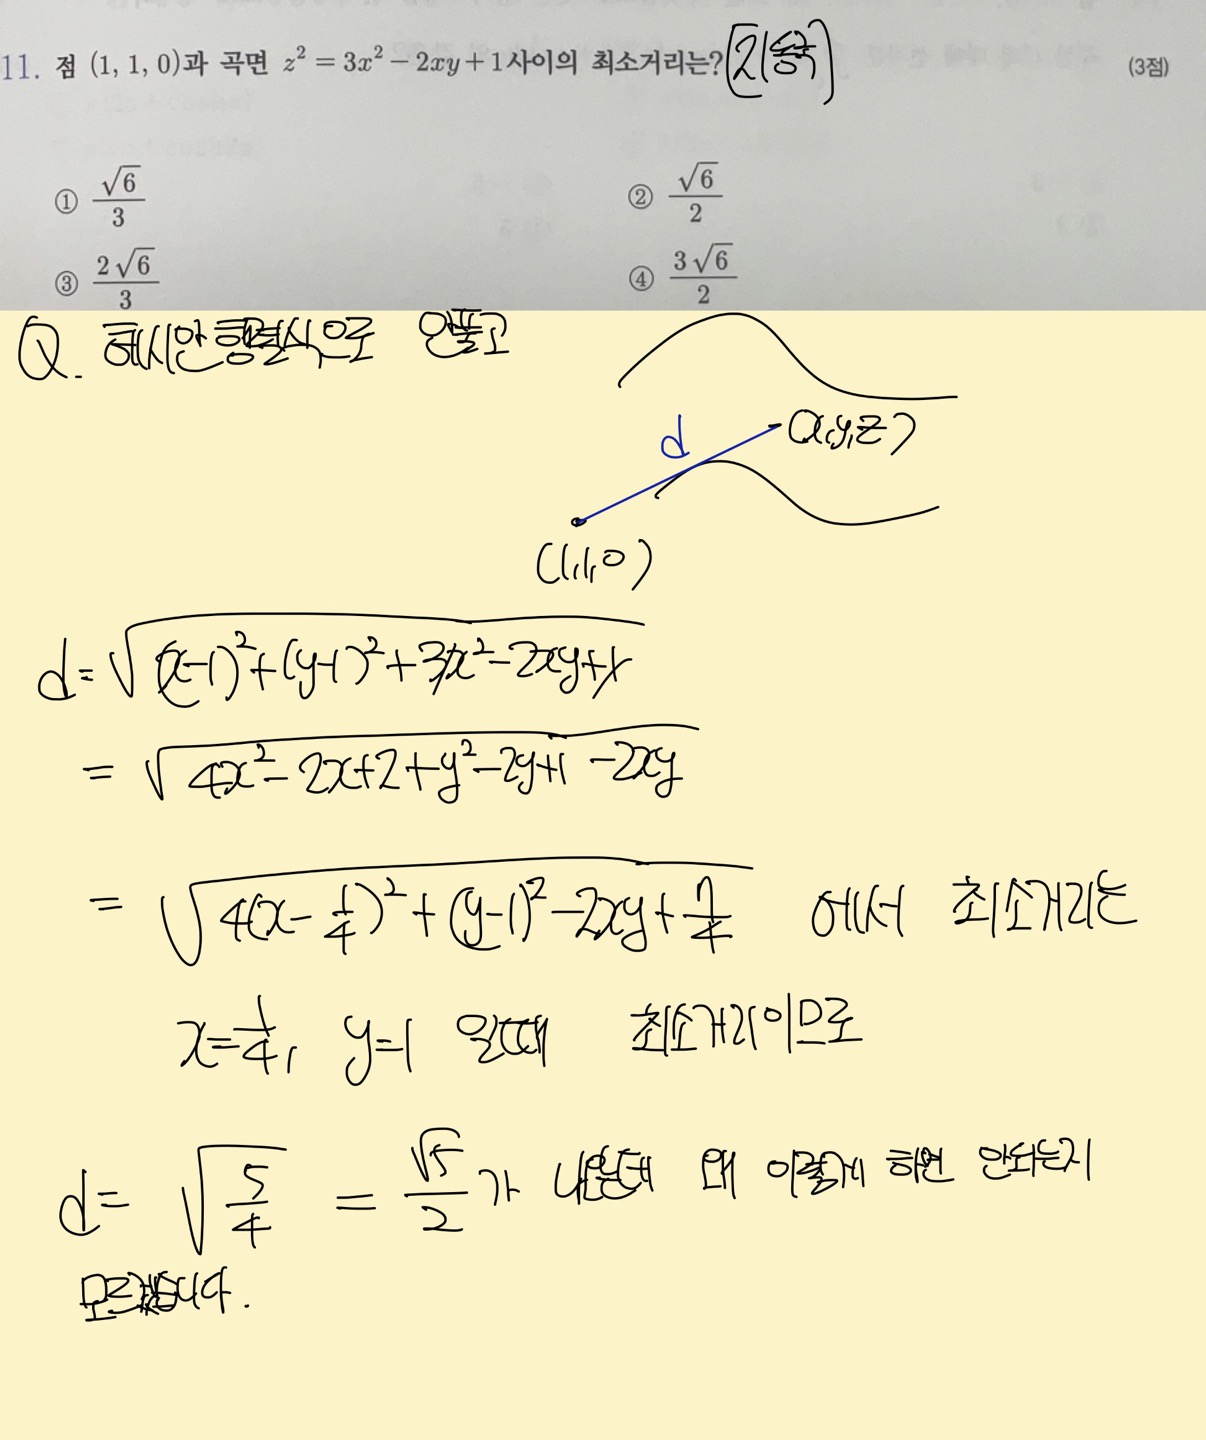 11. 점 (1, 1, 0)과 곡면 z² = 3x² − 2xy + 1사이의 최소거리는? [21중국] (3점)
① √6/3
② √6/2
③ 2√6/3
④ 3√6/2
Q. 헤시안 행렬식으로 안풀고
d
(x,y,z)
(1,1,0)
d = √((x-1)²+(y-1)²+3x²-2xy+1)
= √(4x²-2x+2+y²-2y+1-2xy)
= √(4(x-1/4)²+(y-1)²-2xy+7/4) 에서 최소거리는
x=1/4, y=1 일때 최소거리이므로
d= √(5/4) = √5/2 가 나왔는데 왜 이렇게 하면 안되는지
모르겠습니다.